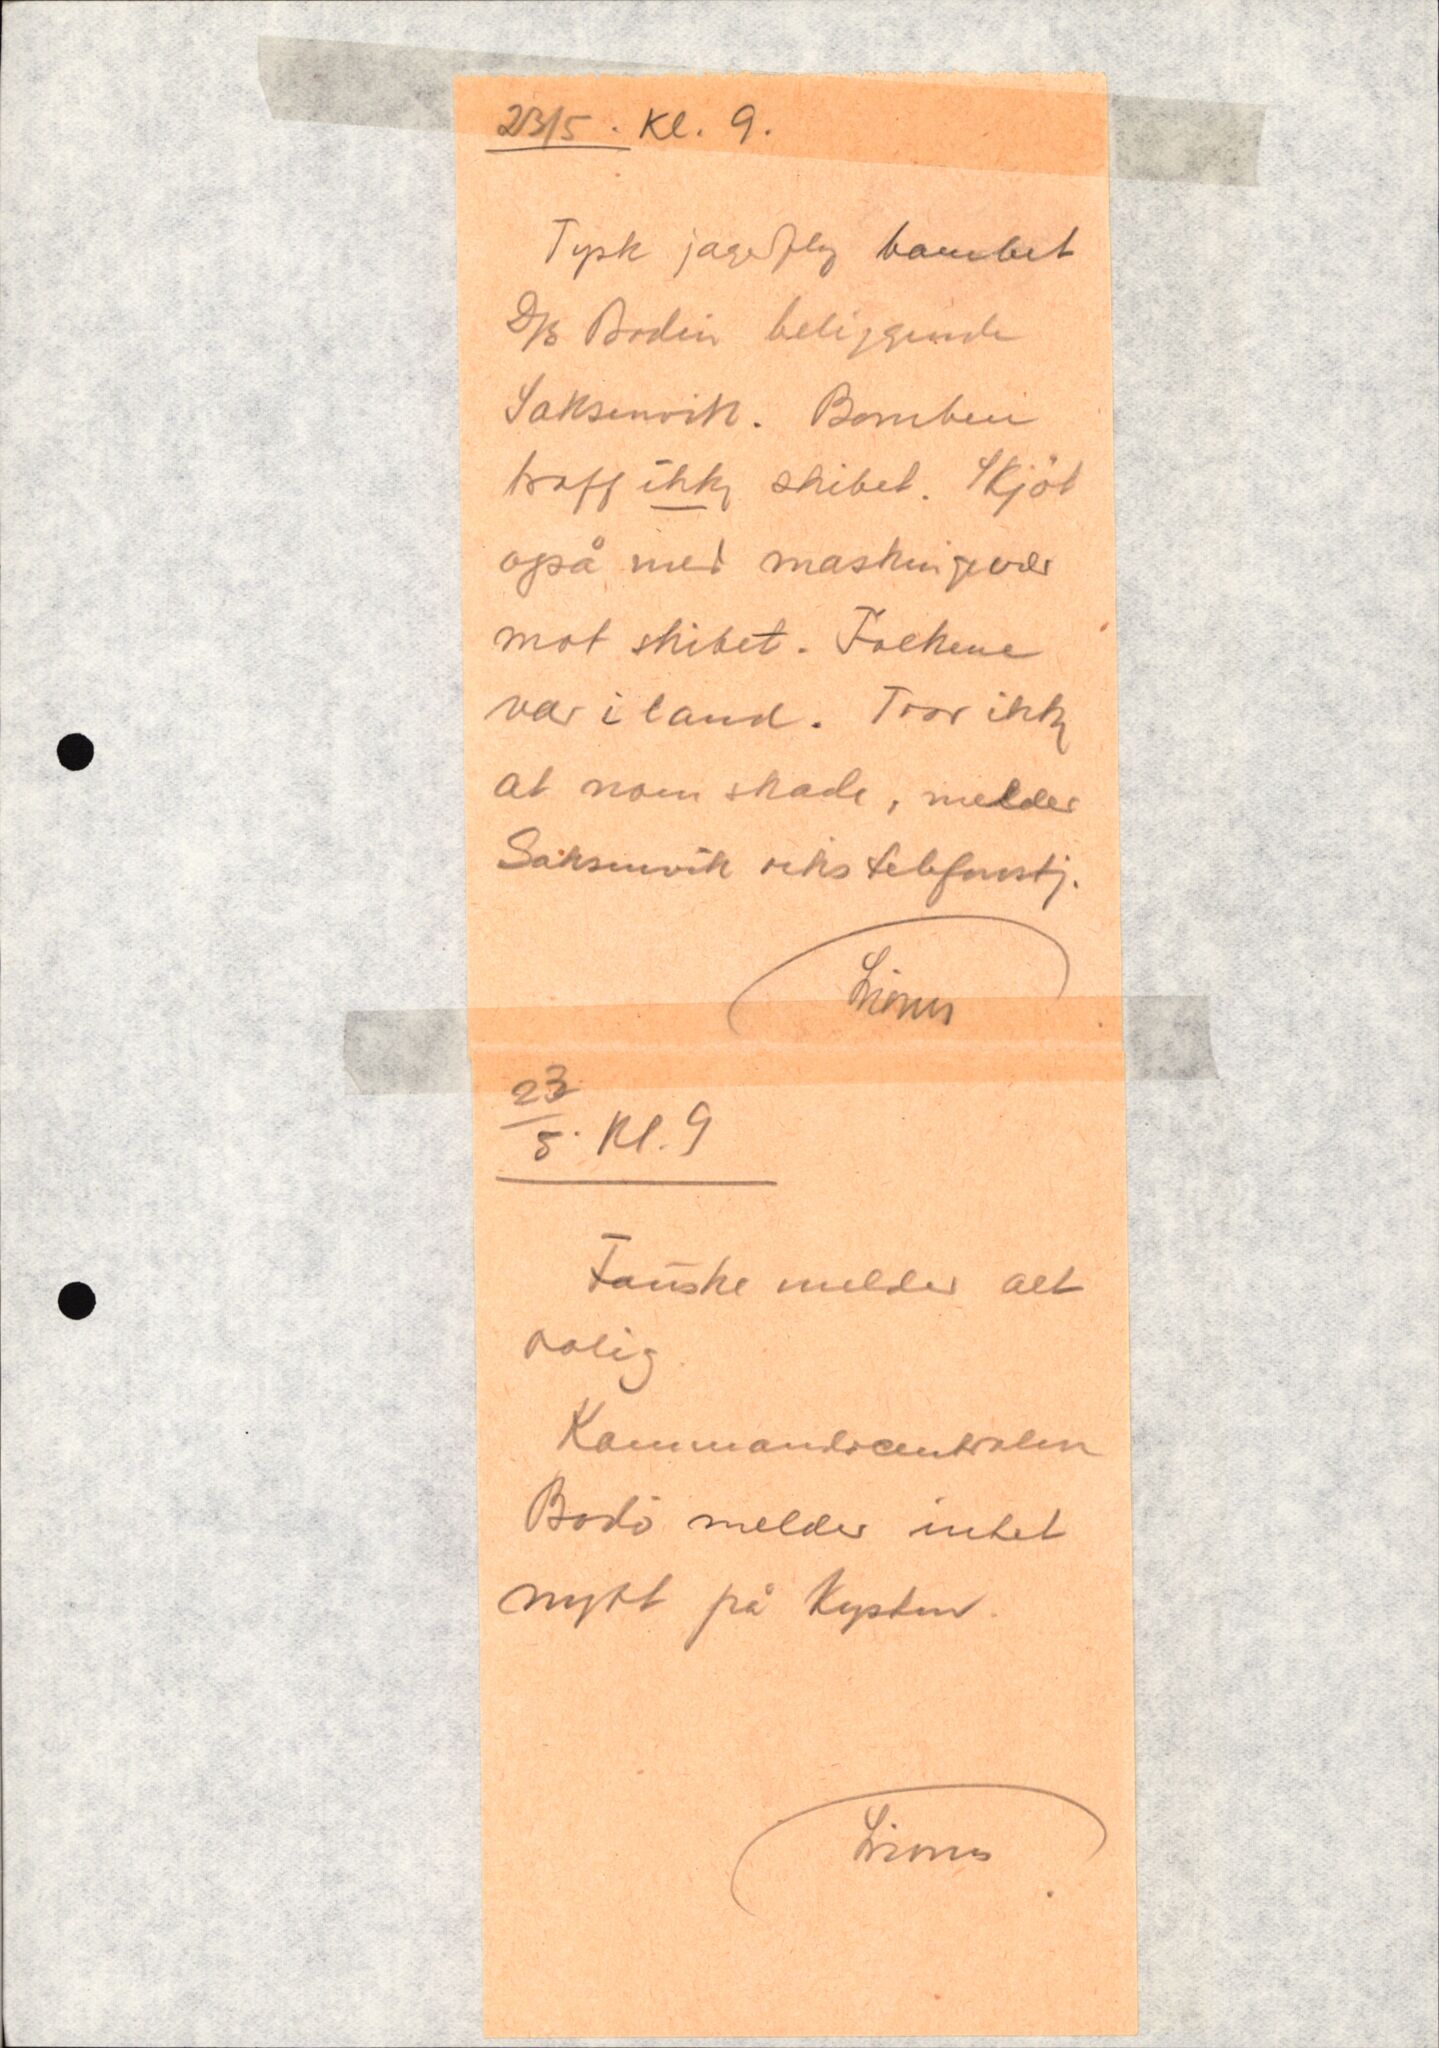 23/5. Kl. 9.
Tysk jagerfly bombet
D/S Bodin beliggende
Saksenvik. Bomben
traff ikke skibet. Skjöt
også med maskingevær
mot skibet. Folkene
var i land. Tror ikke
at noen skade, melder
Saksenvik rikstelefonstj.
23/5. Kl. 9
Fauske melder alt
rolig
Kommandocentralen
Bodö melder intet
nytt på Kysten.